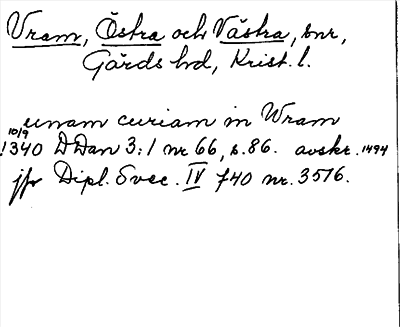 Vram, Östra och Västra, snr,
Gärds hd, Krist. l.
unam curiam in Wram
10/9
1340 DDan 3:1 nr 66, s. 86. avskr. 1494
jfr Dipl. Svec. IV 740 nr. 3516.